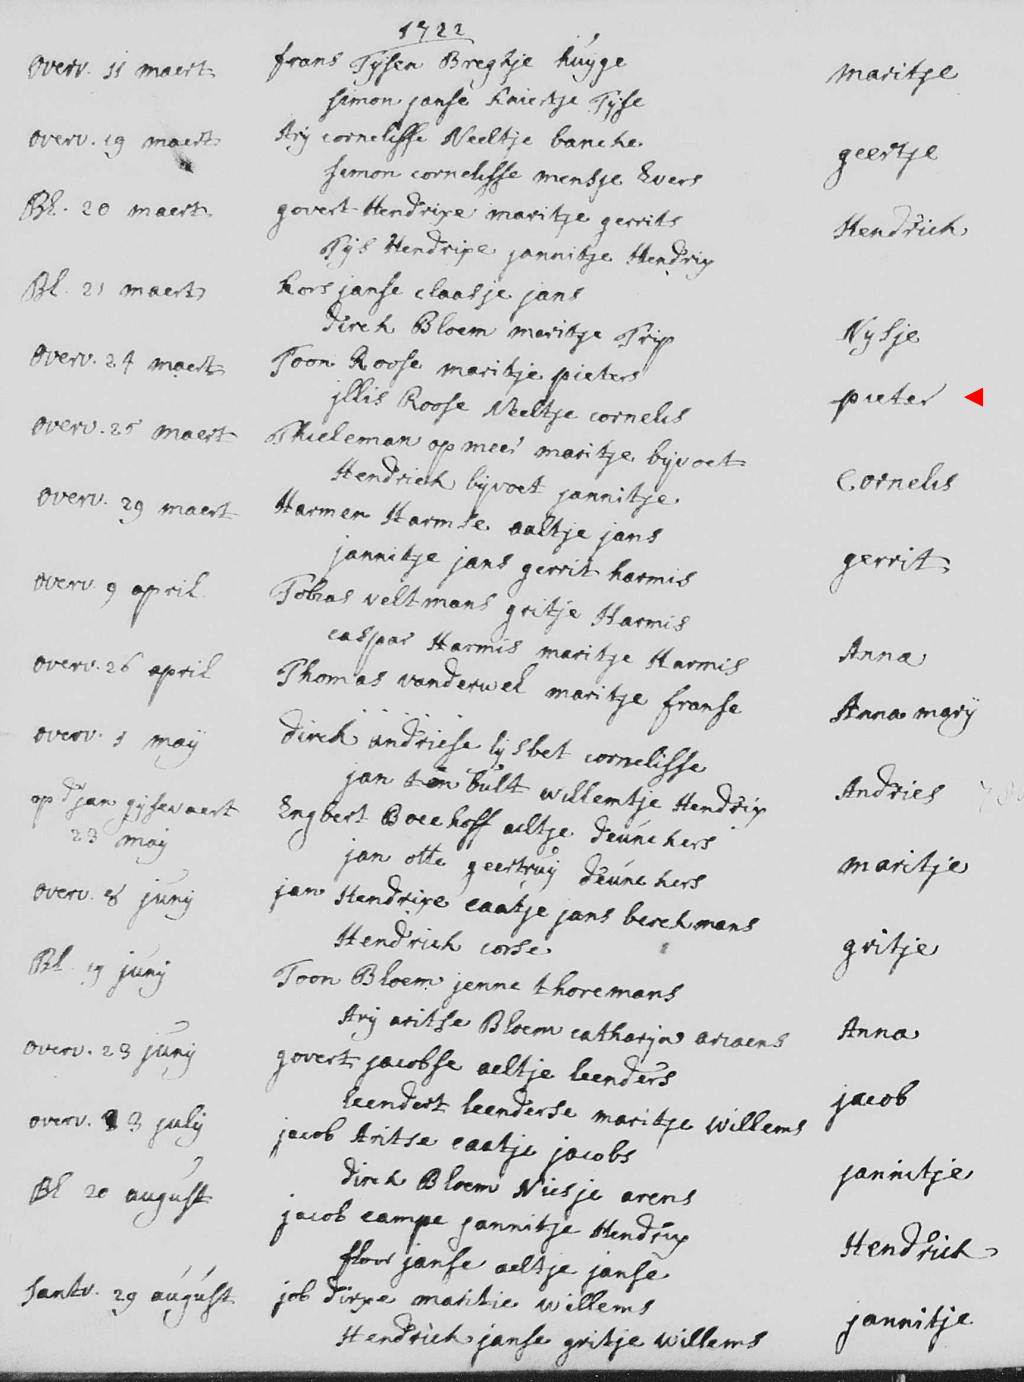 1722
Overv. 11 maert frans Tijsen Breghje huijge maritje
simon janse kniertje Tijse
Overv. 19 maert Arij cornelisse Neeltje geertje
simon cornelisse mensje Evers
Bl. 20 maert govert Hendrixe maritje gerrits Hendrick
Tijs Hendrixe jannitje Hendrix
Bl. 21 maert Cors janse claasje jans
dirck Bloem maritje Prip Nysje
Overv. 24 maert Toon Roose maritje pieters
jllis Roose Neeltje cornelis pieter
Overv. 25 maert Thieleman op meer maritje bijvoet
Hendrick bijvoet jannitje Cornelis
Overv. 29 maert Harmen Harmse aaltje jans
jannitje jans gerrit harmis gerrit
Overv. 9 april Tobias veltmans gritje Harmis
caspar Harmis maritje Harmis Anna
Overv. 26 april Thomas vanderwel maritje franse Anna marij
Overv. 1 maij dirck andriese lijsbet cornelisse
jan ten bult willemtje Hendrix Andries
op d'jan gijsevaert Engbert Boeckhoff aeltje deunckers
23 maij jan otte geertruij deunckers maritje
Overv. 8 junij jan Hendrixe caatje jans berckmans
Hendrick corse gritje
Bl. 19 junij Toon Bloem jenne thoremans
Arij aritse Bloem catharijn ariaens Anna
Overv. 23 junij govert jacobse aeltje leenders
leendert leenderse maritje willems jacob
Overv. 13 julij jacob Aritse caatje jacobs
dirck Bloem Niesje arens jannitje
Bl 20 august jacob campe jannitje Hendrix
floor janse aeltje janse Hendrick
Santv. 29 august job dirxe maritie willems
Hendrick janse gritje willems jannitje